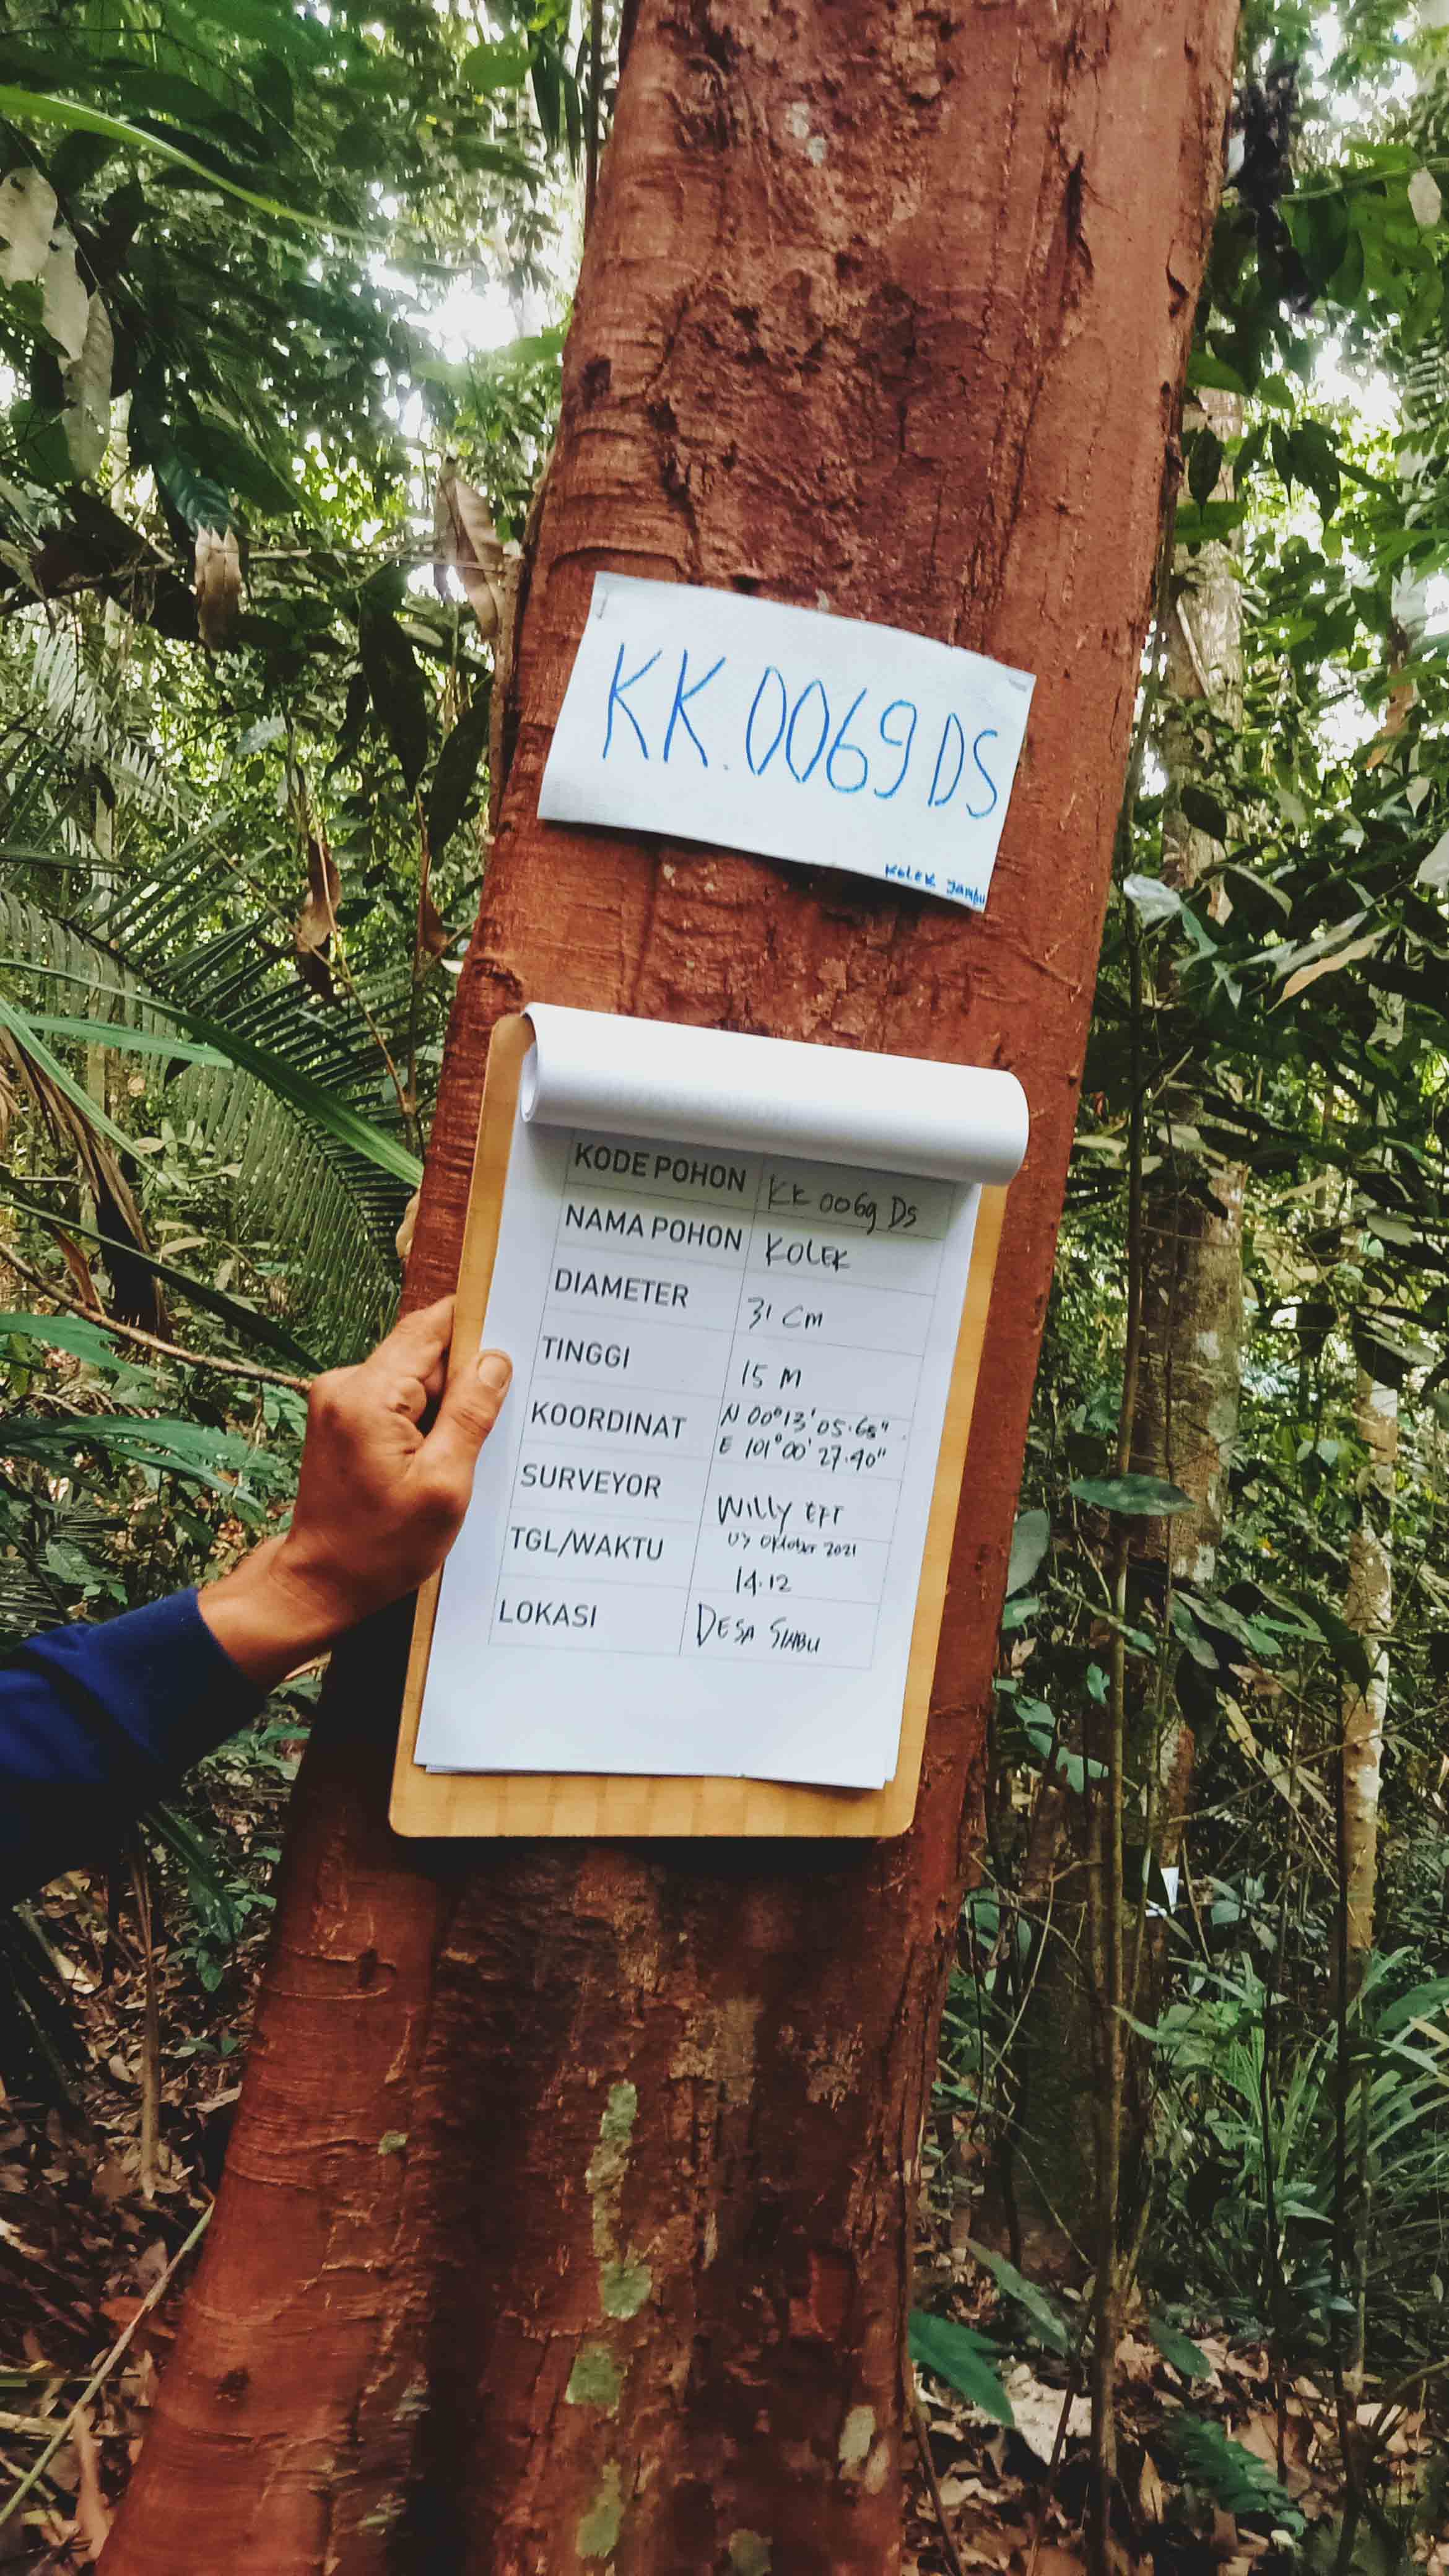 KK.0069 DS
KOLEK JAMBU
KODE POHON KK 0069 DS
NAMA POHON KOLEK
DIAMETER 31 CM
TINGGI 15 M
KOORDINAT N 00°13'05.68"
E 101°00'27.40"
SURVEYOR WILLY EFF
TGL/WAKTU 03 Oktober 2021
14.12
LOKASI DESA SIABU